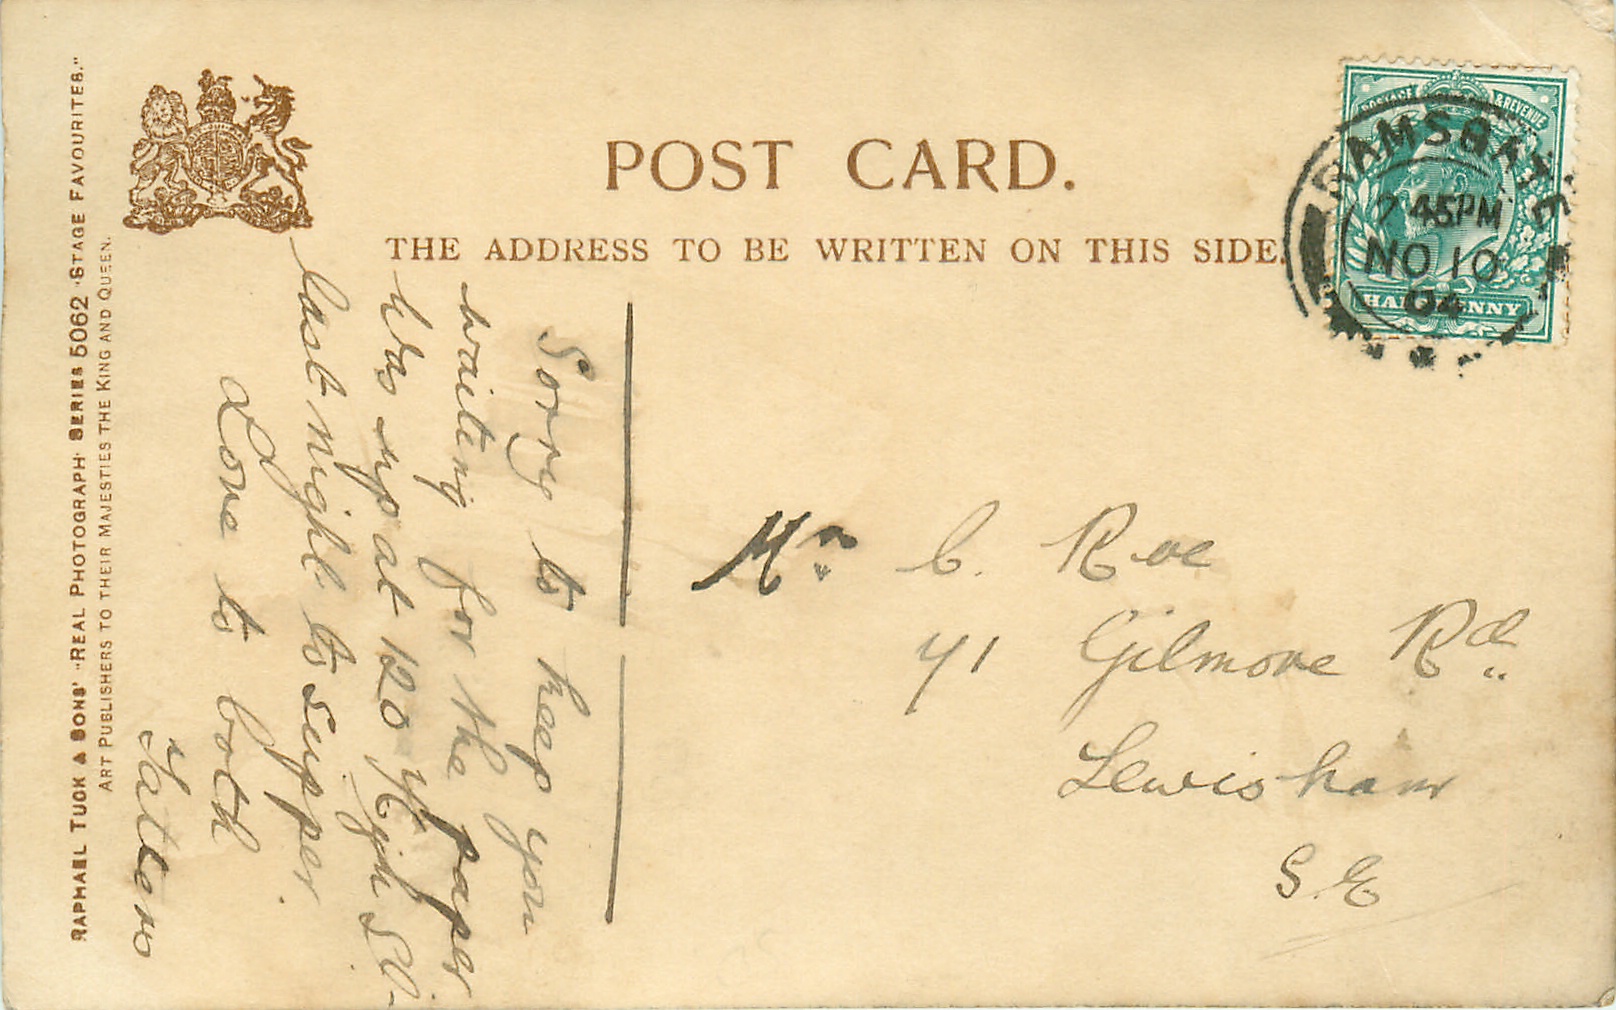 POST CARD.
THE ADDRESS TO BE WRITTEN ON THIS SIDE.
RAPHAEL TUCK & SONS' "REAL PHOTOGRAPH" SERIES 5062 "STAGE FAVOURITES."
ART PUBLISHERS TO THEIR MAJESTIES THE KING AND QUEEN.
POSTAGE & REVENUE
HALFPENNY
RAMSGATE
7 45PM
NO 10
04
Sorry to keep you
waiting for the paper
Was up at 120 High St.
last night to supper.
Love to both
Mr C. Roe
71 Gilmore Rd
Lewisham
S.E